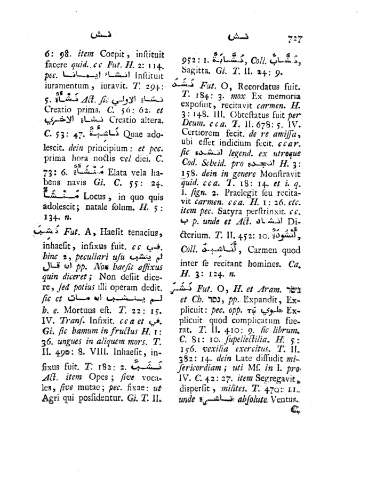 نـش
نـش
727
6: 98. item Cœpit, instituit
facere quid. cc Fut. H. 2: 114.
pec. انشاء ايمانا Instituit
iuramentum, iuravit. T. 294:
5. Act. sic نشاء الاولي
Creatio prima. C. 56: 62. et
نشاء الاخري Creatio altera.
C. 53: 47. Quae ado-
lescit. dein principium: et pec.
prima hora noctis vel diei. C.
73: 6. Elata vela ha-
bens navis Gi. C. 55: 24.
Locus, in quo quis
adolescit; natale solum. H. 5:
134. n.
نشب Fut. A, Haesit tenacius,
inhaesit, infixus fuit. cc في.
hinc 2, peculiari usu لم ينشب
ان قال pp. Non haesit affixus
quin diceret; Non desiit dice-
re, sed potius illi operam dedit.
sic et لم ينشب ان مات
b. e. Mortuus est. T. 22: 15.
IV. Trans. Infixit. cca et في.
Gi. sic hamum in fructus H. 1:
36. ungues in aliquem mors. T.
II. 490: 8. VIII. Inhaesit, in-
fixus fuit. T. 182: 2. نشب
Act. item Opes; sive voca-
les, sive mutae; pec. fixae: ut
Agri qui possidentur. Gi. T. II.
952: 1. نشاب, نشابة Coll.
Sagitta. Gi. T. II. 24: 9.
نشد Fut. O, Recordatus fuit.
T. 184: 3. mox Ex memoria
exposuit, recitavit carmen. H.
3: 148. III. Obtestatus fuit per
Deum. cca. T. II. 678: 5. IV.
Certiorem fecit. de re amissa,
ubi esset indicium fecit. ccar.
sic انشده legend. ex utroque
Cod. Scheid. pro انشده H. 3:
158. dein in genere Monstravit
quid. cca. T. 18: 14 et i. q.
I. sign. 2. Praelegit seu recita-
vit carmen. cca H. 1: 26. etc.
item pec. Satyra perstrinxit. cc.
على pers. C. T. انشودة Di-
cterium. T. II. 452: 10.
Coll. اناشيد, Carmen quod
inter se recitant homines. Ca.
H. 3: 124. n.
نشر Fut. O, H. et Aram. נשר
et Ch. נסר, pp. Expandit, Ex-
plicuit: pec. opp. طوى pp.
Explicuit quod complicatum fue-
rat. T. II. 410: 9. sic librum,
C. 81: 10. supellectilia. H. 5:
156. vexilla exercitus. T. II.
382: 14. dein Late diffudit mi-
sericordiam; uti Mf. in l. pro
IV. C. 42: 27. item Segregavit,
dispersit, milites. T. 470: 11.
unde ناشر absolute Ventus.